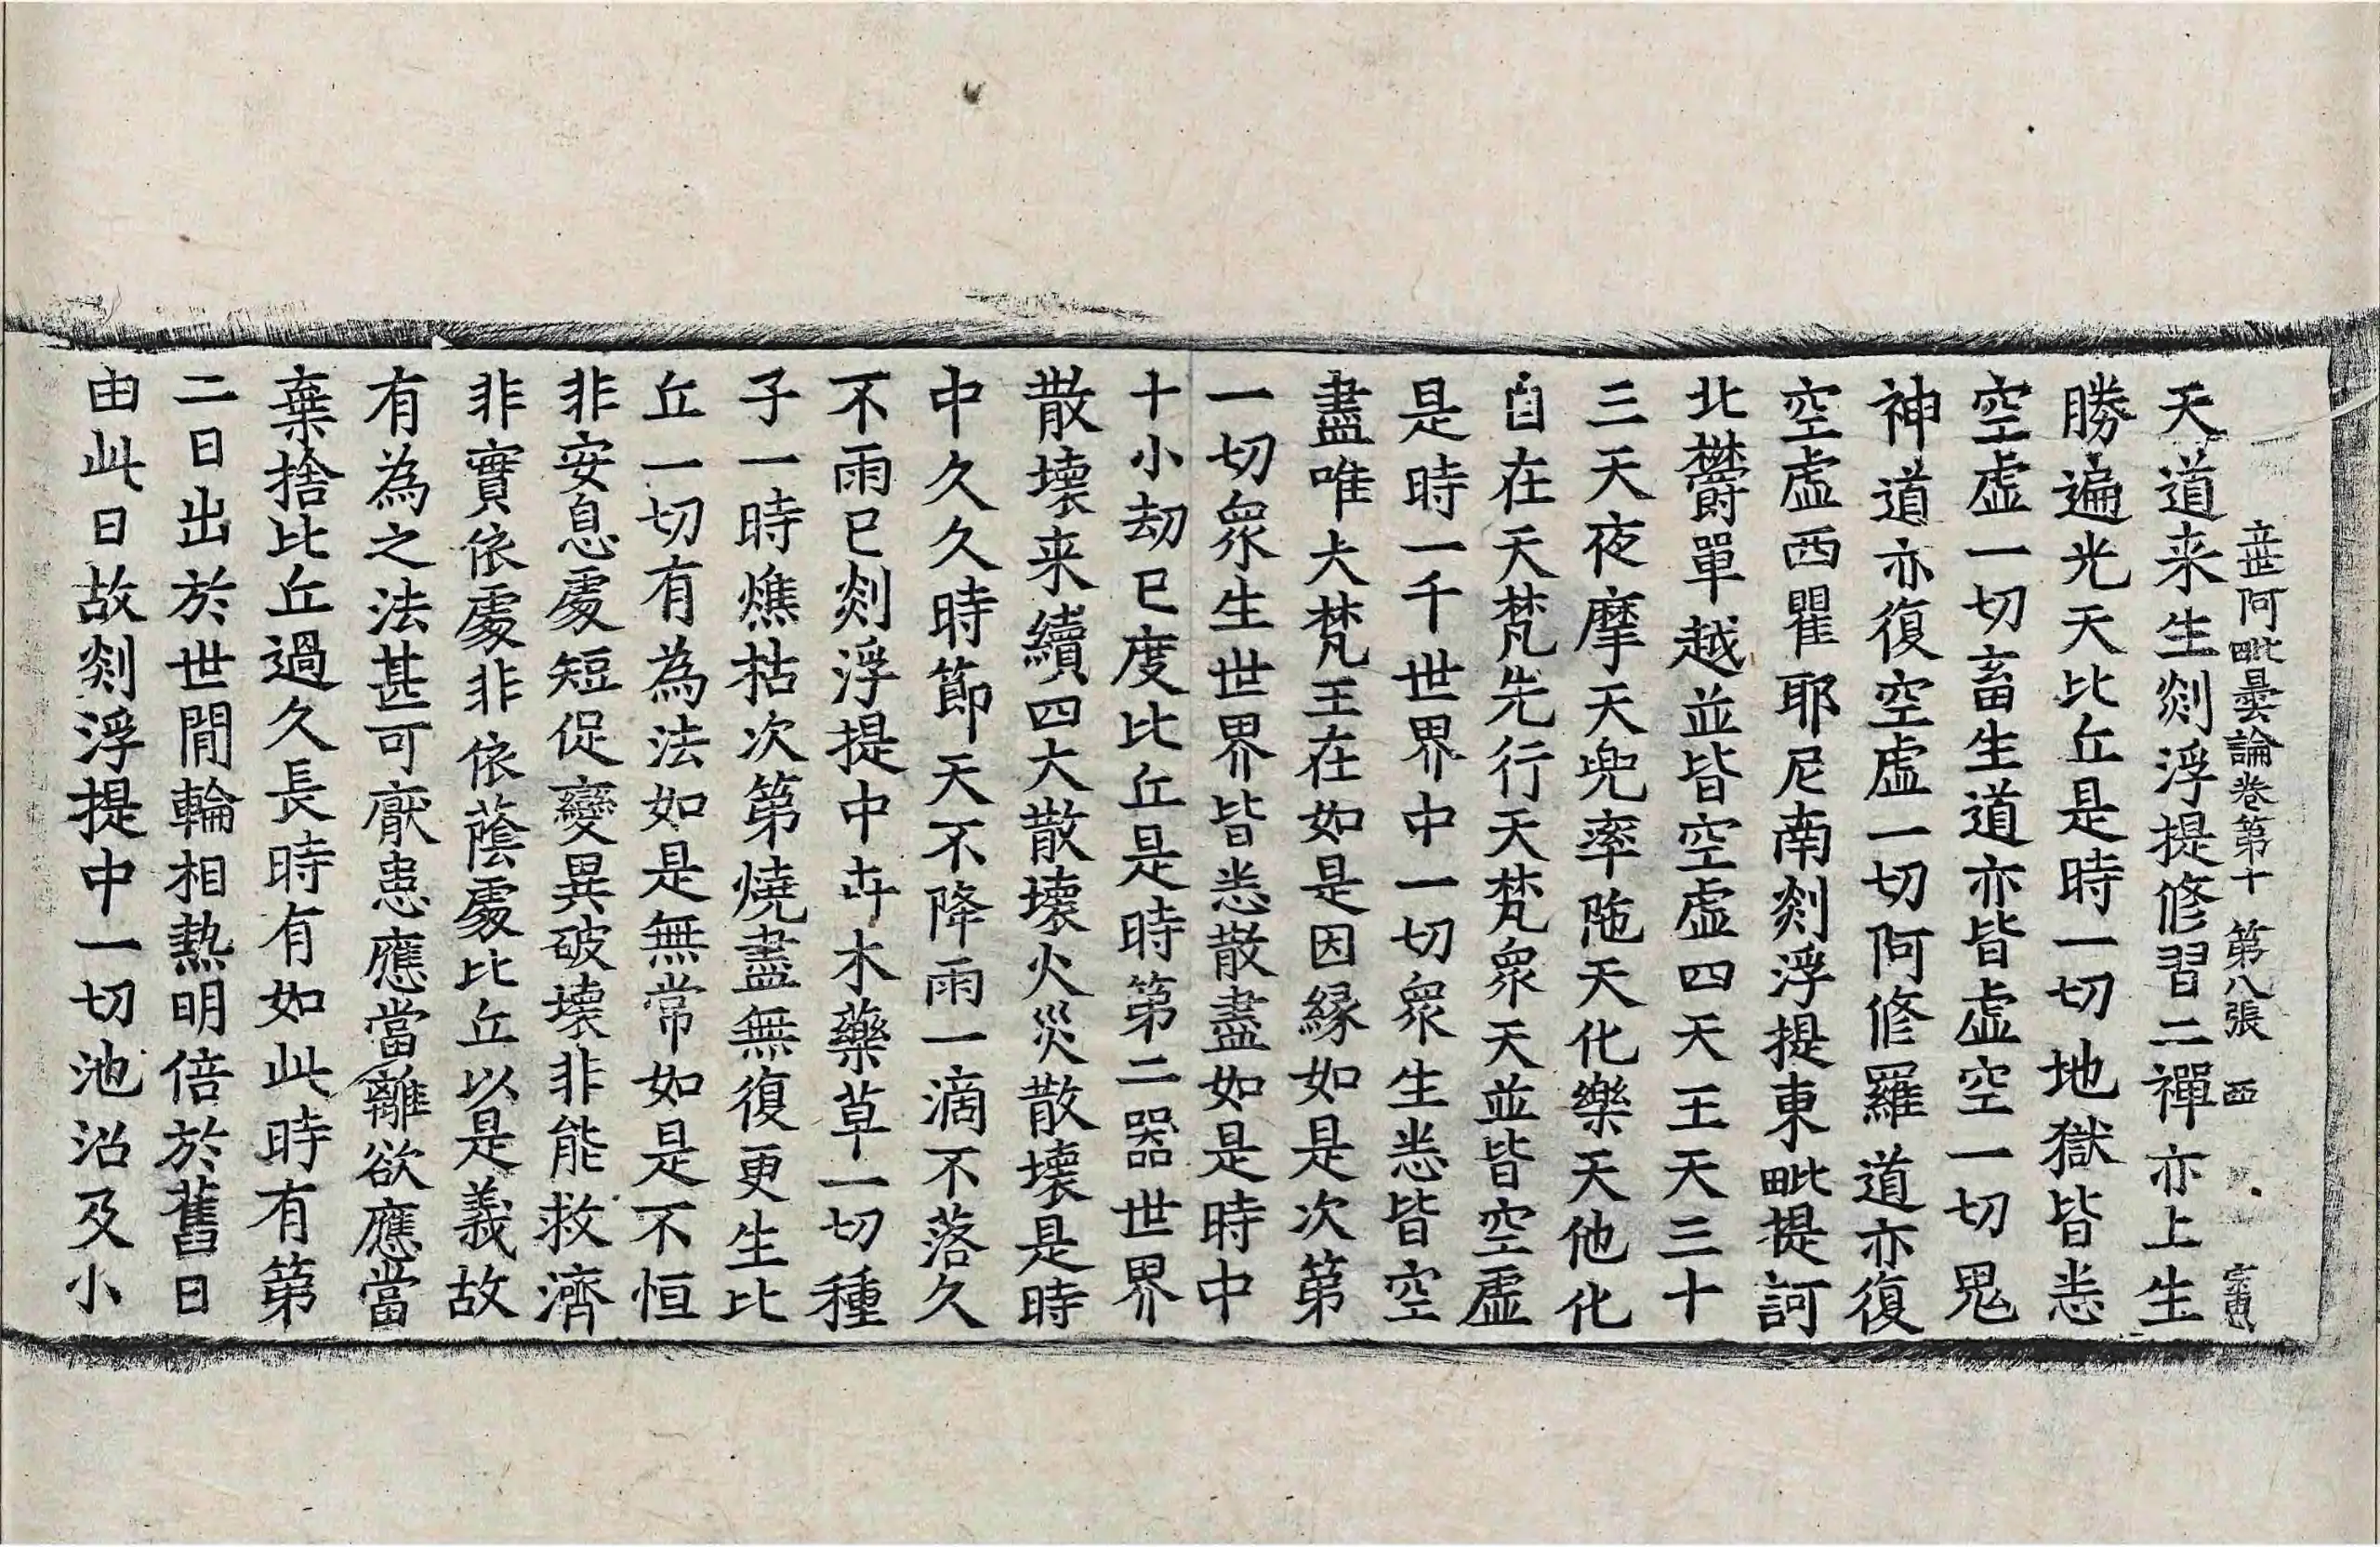 立世阿毗曇論卷第十 第八張 西
天道来生剡浮提修習二禪亦上生
勝遍光天比丘是時一切地獄皆悉
空虛一切畜生道亦皆虛空一切鬼
神道亦復空虛一切阿修羅道亦復
空虛西瞿耶尼南剡浮提東毗提訶
北欝單越並皆空虛四天王天三十
三天夜摩天兜率陁天化樂天他化
自在天梵先行天梵衆天並皆空虛
是時一千世界中一切衆生悉皆空
盡唯大梵王在如是因縁如是次第
一切衆生世界皆悉散盡如是時中
十小劫已度比丘是時第二器世界
散壞来續四大散壞火災散壞是時
中久久時節天不降雨一滴不落久
不雨已剡浮提中卉木藥草一切種
子一時燋枯次第燒盡無復更生比
丘一切有為法如是無常如是不恒
非安息處短促變異破壞非能救濟
非實依處非依蔭處比丘以是義故
有為之法甚可厭患應當離欲應當
棄捨比丘過久長時有如此時有第
二日出於世間輪相熱明倍於舊日
由此日故剡浮提中一切池沼及小